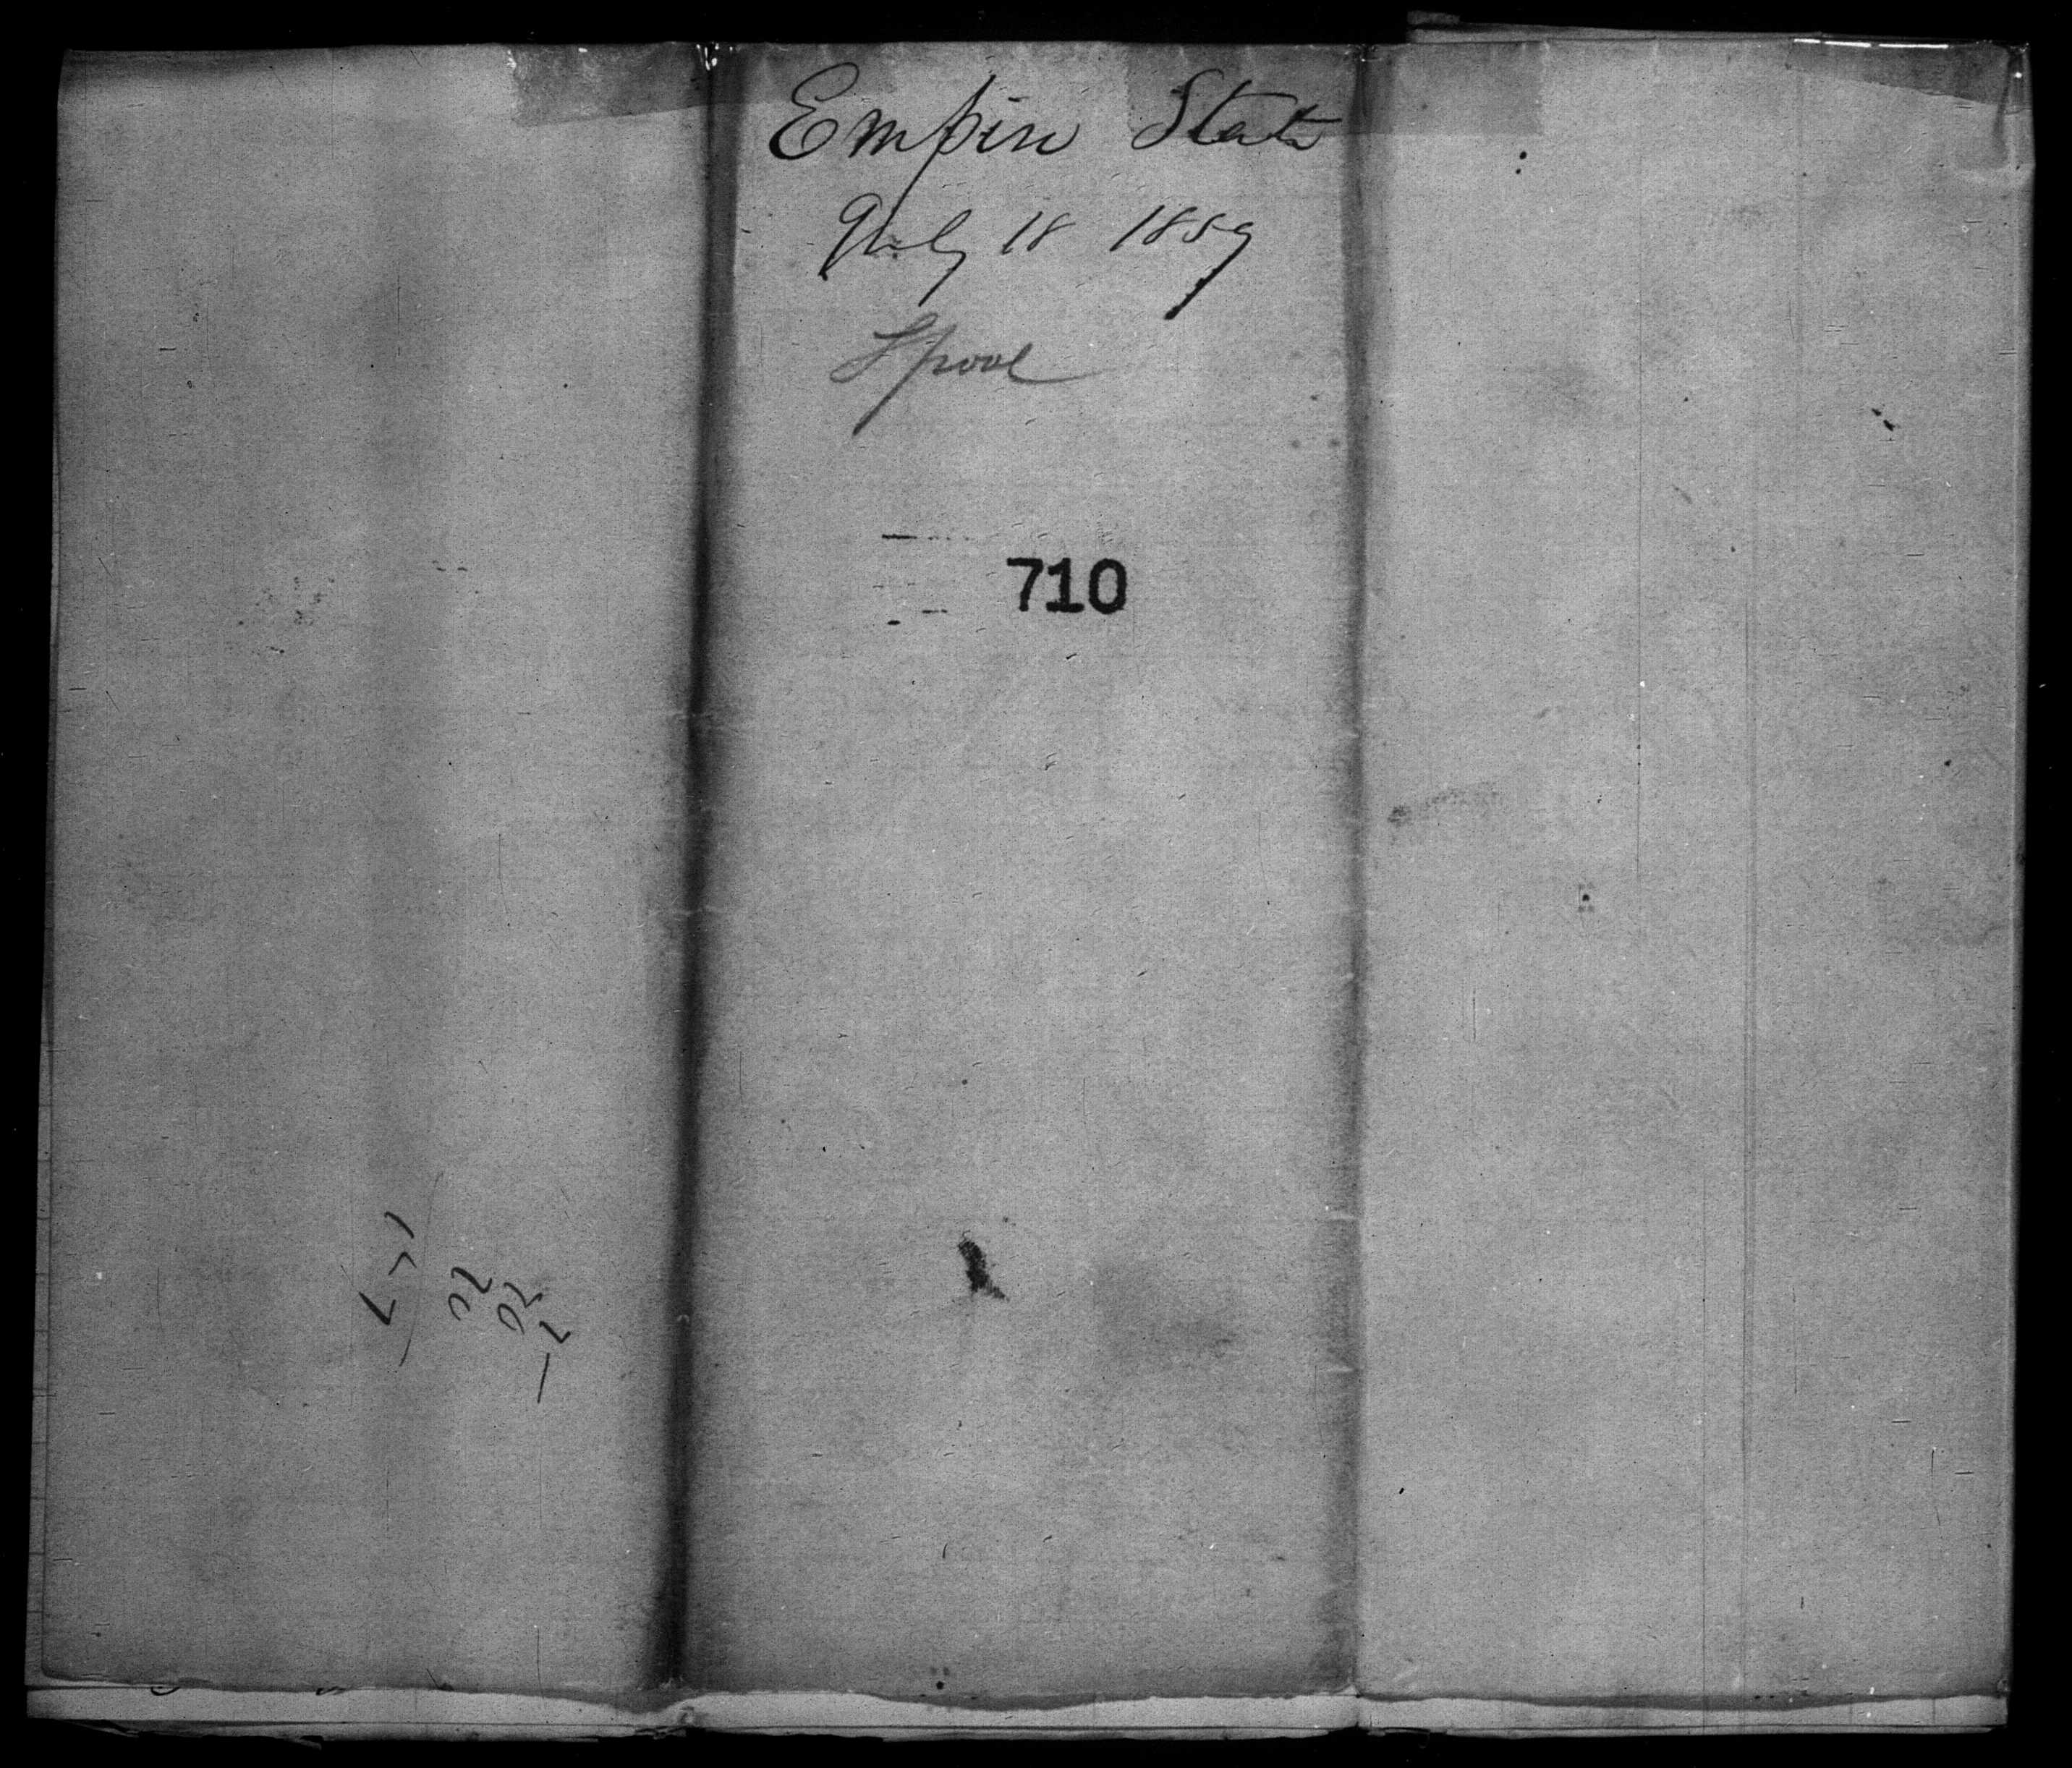 Empire State
July 18 1859
Lpool
710